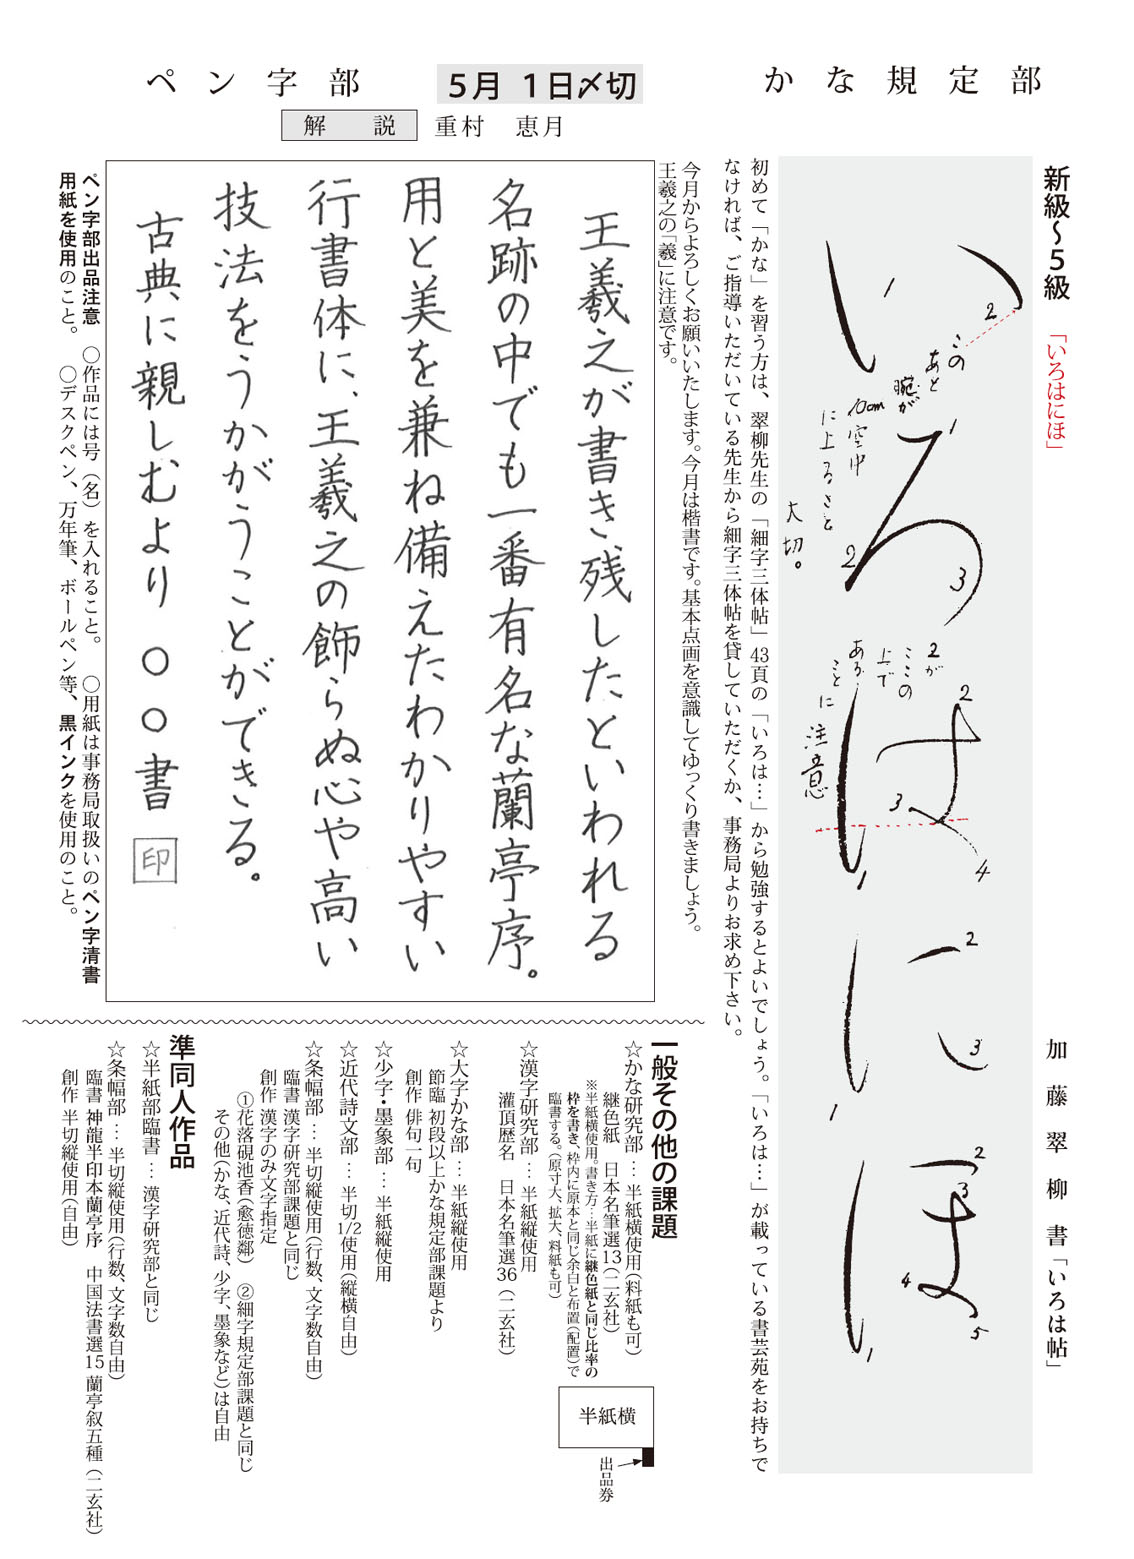 かな規定部
5月 1日〆切
ペン字部
解 説
重村 恵月
新級〜5級 「いろはにほ」
加藤翠柳書「いろは帖」
いろはにほ
1
2
このあと腕が10cm空中に上ることと大切。
1
2
3
2がここの上であることに注意
2
3
4
1
2
3
1
2
3
4
5
1
初めて「かな」を習う方は、翠柳先生の「細字三体帖」43頁の「いろは…」から勉強するとよいでしょう。「いろは…」が載っている書芸苑をお持ちで
なければ、ご指導いただいている先生から細字三体帖を貸していただくか、事務局よりお求め下さい。
今月からよろしくお願いいたします。今月は楷書です。基本点画を意識してゆっくり書きましょう。
王羲之の「羲」に注意です。
王羲之が書き残したといわれる
名跡の中でも一番有名な蘭亭序。
用と美を兼ね備えたわかりやすい
行書体に、王羲之の飾らぬ心や高い
技法をうかがうことができる。
古典に親しむより 〇〇書 印
ペン字部出品注意 〇作品には号(名)を入れること。 〇用紙は事務局取扱いのペン字清書
用紙を使用のこと。 〇デスクペン、万年筆、ボールペン等、黒インクを使用のこと。
一般その他の課題
☆かな研究部…半紙横使用(料紙も可)
継色紙 日本名筆選13(二玄社)
※半紙横使用。書き方…半紙に継色紙と同じ比率の
枠を書き、枠内に原本と同じ余白と布置(配置)で
臨書する。(原寸大、拡大、料紙も可)
半紙横
出品券
☆漢字研究部…半紙縦使用
灌頂歴名 日本名筆選36(二玄社)
☆大字かな部…半紙縦使用
節臨 初段以上かな規定部課題より
創作 俳句一句
☆少字・墨象部…半紙縦使用
☆近代詩文部…半切1/2使用(縦横自由)
☆条幅部…半切縦使用(行数、文字数自由)
臨書 漢字研究部課題と同じ
創作 漢字のみ文字指定
①花落硯池香(愈徳鄰) ②細字規定部課題と同じ
その他(かな、近代詩、少字、墨象など)は自由
準同人作品
☆半紙部臨書…漢字研究部と同じ
☆条幅部…半切縦使用(行数、文字数自由)
臨書 神龍半印本蘭亭序 中国法書選15 蘭亭叙五種(二玄社)
創作 半切縦使用(自由)